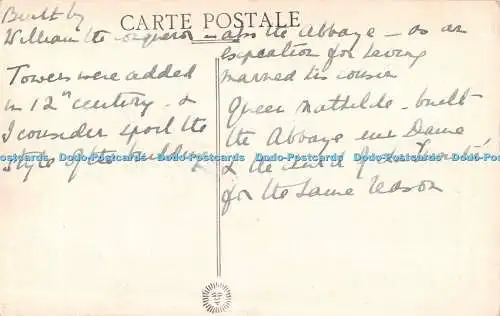 CARTE POSTALE
Built by
William the Conqueror - also the Abbaye - as an
expiation for having
married his cousin
Towers were added
in 12th century - &
I consider spoil the
style of the building
Queen Mathilde - built
the Abbaye aux Dame
& the
for the same reason
Dodo-Postcards Dodo-Postcards Dodo-Postcards Dodo-Postcards Dodo-Postcards